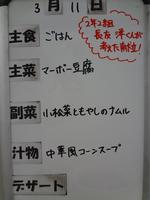 3月11日
2年2組
長友 洋くんが
考えた献立!
主食 ごはん
主菜 マーボー豆腐
副菜 小松菜ともやしのナムル
汁物 中華風コーンスープ
デザート